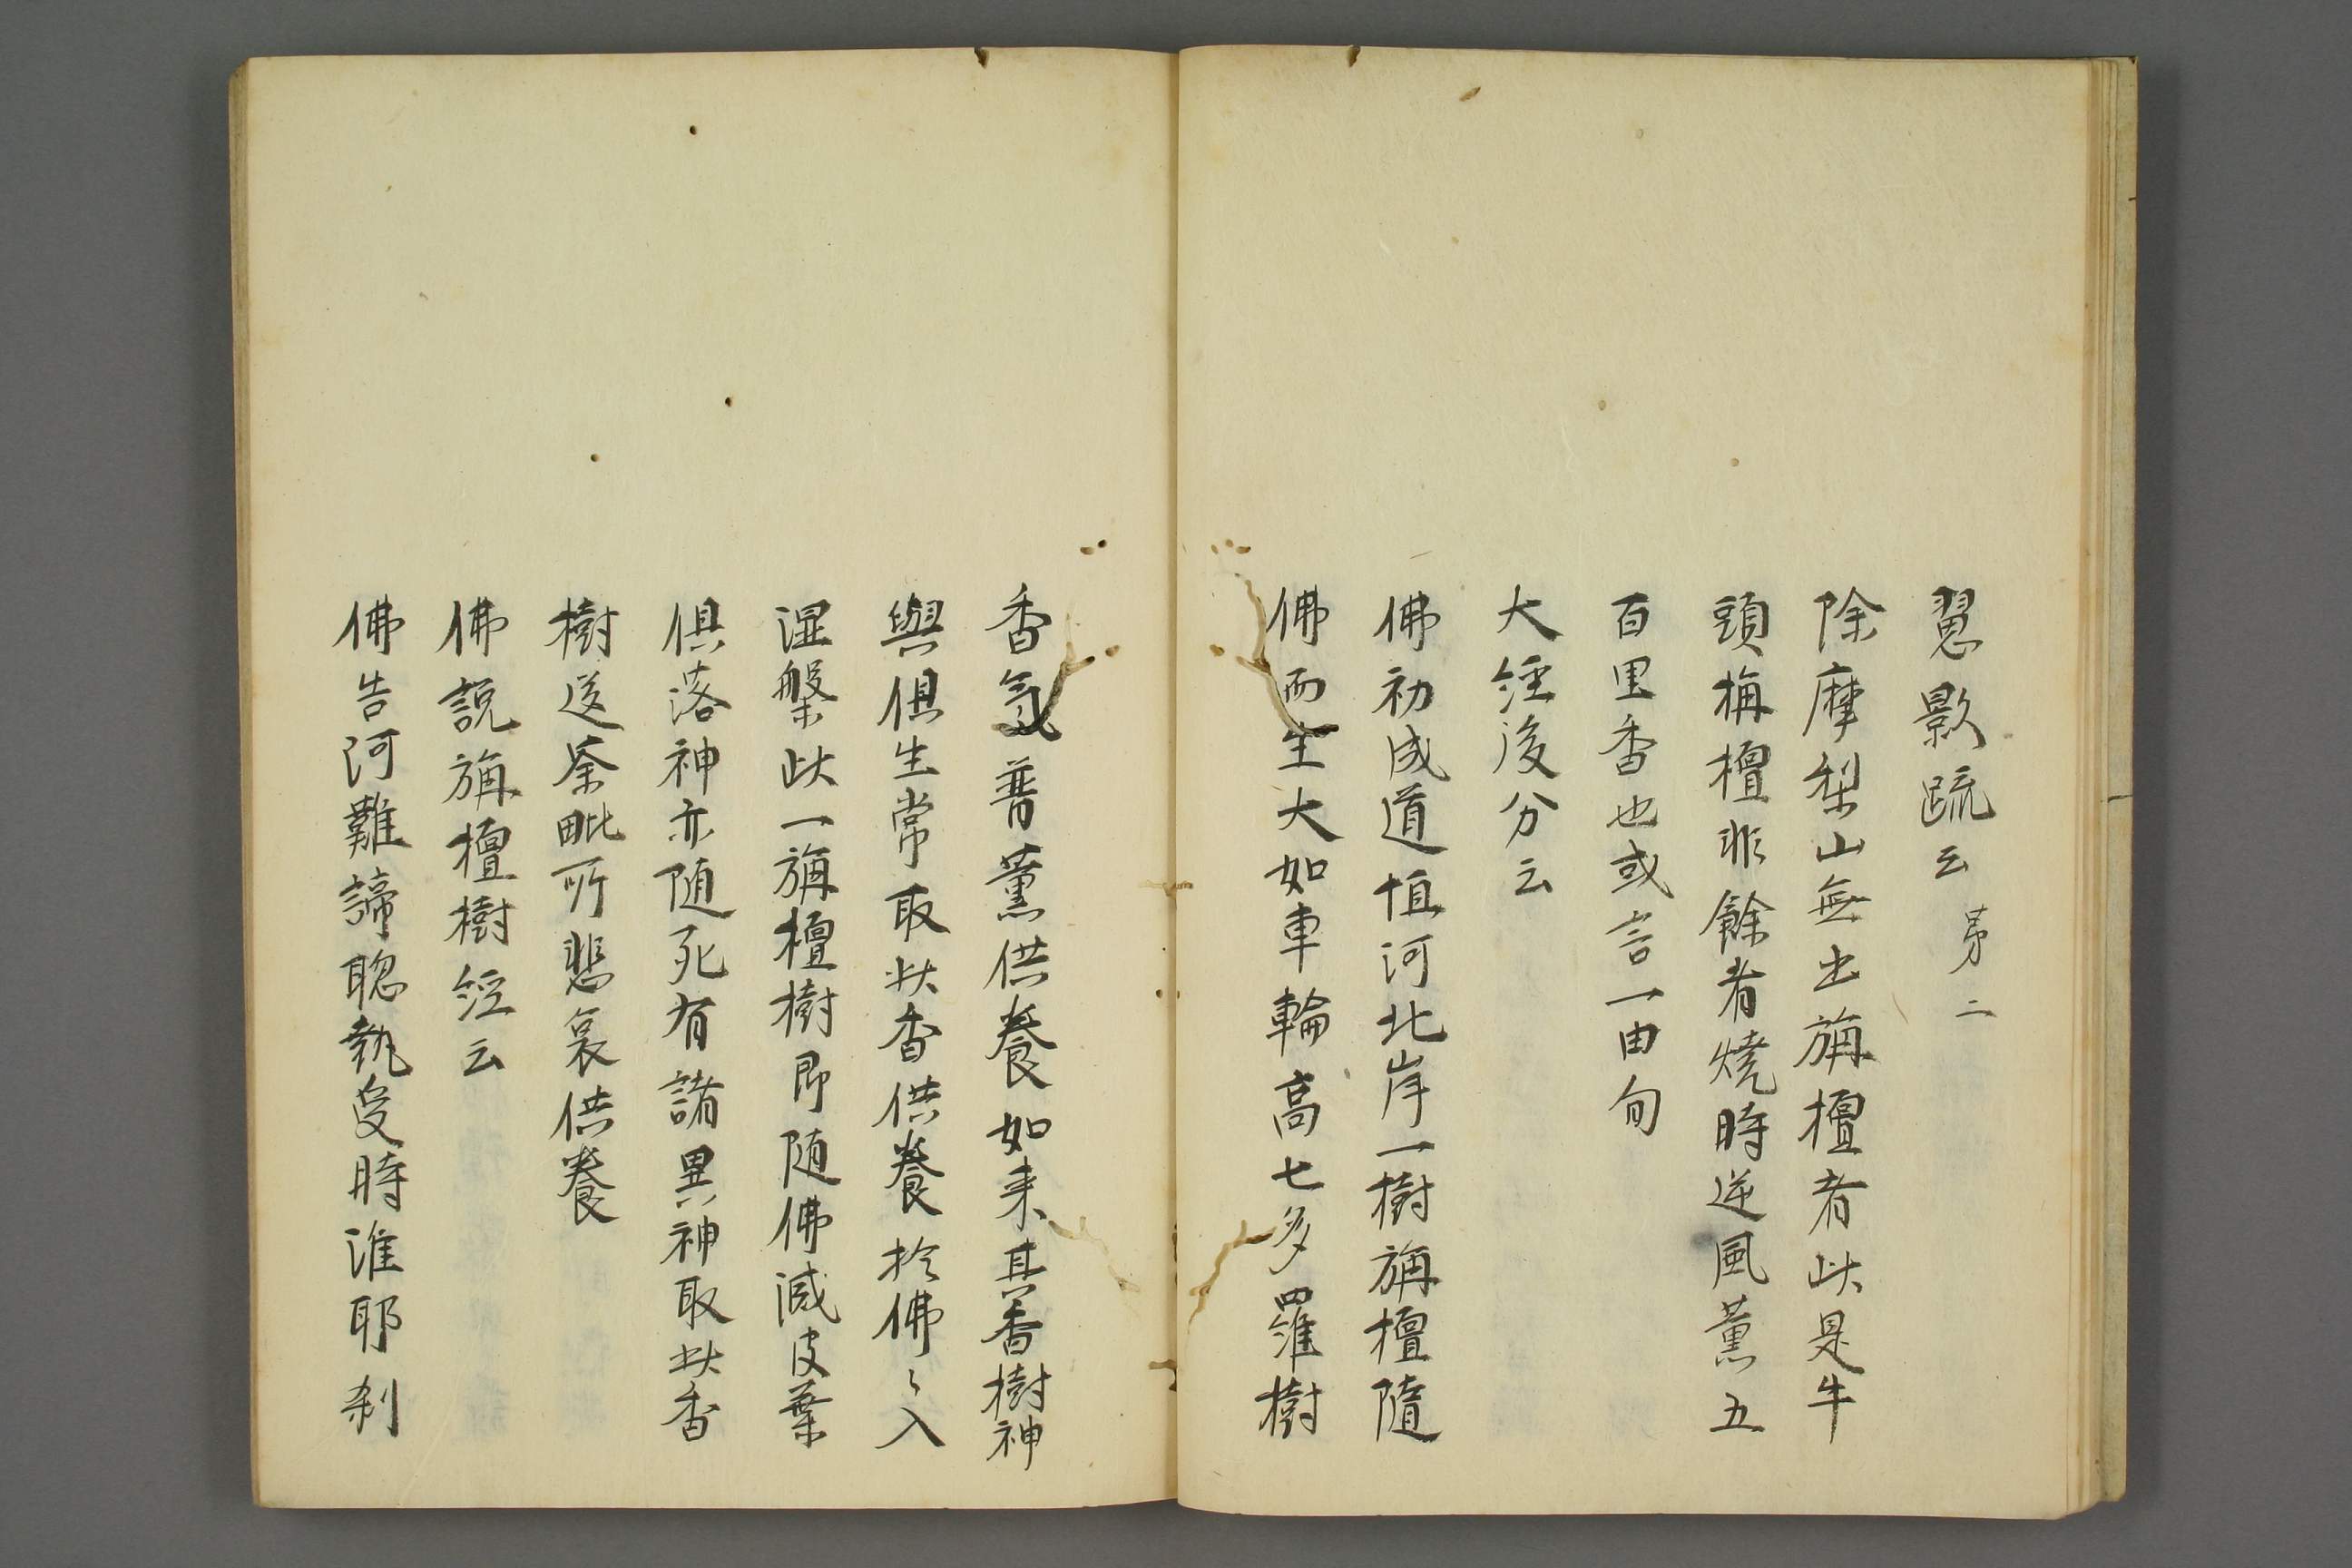 曇影疏云 第二
除摩梨山無出旃檀者此是牛
頭栴檀非餘者燒時逆風薰五
百里香也或言一由旬
大経後分云
佛初成道恒河北岸一樹旃檀隨
佛而生大如車輪高七多羅樹
香気普薫供養如来其香樹神
與俱生常取此香供養於佛〻入
涅槃此一旃檀樹即随佛滅皮葉
俱落神亦随死有諸異神取此香
樹送荼毗所悲哀供養
佛説旃檀樹経云
佛告阿難諦聡執受時淮耶刹